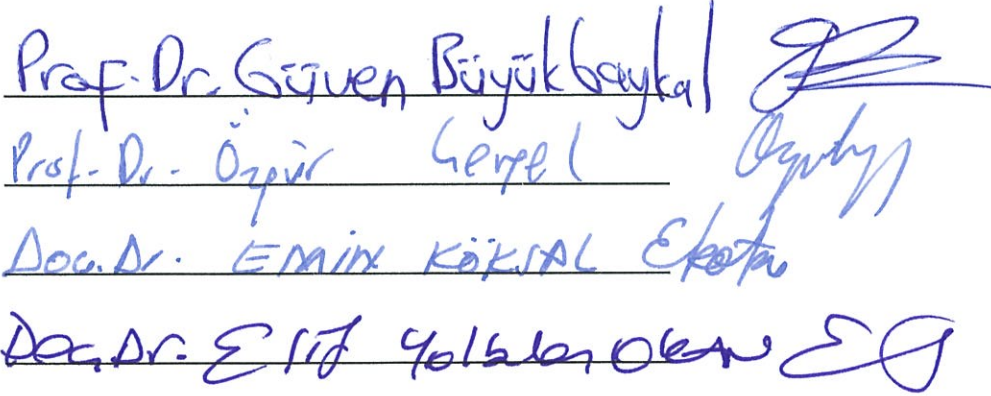 Prof. Dr. Güven Büyükbaykal
Prof. Dr. Özgür
Doç. Dr. EMİN KÖKSAL
Doç. Dr. Elif Yolbulan OKAN